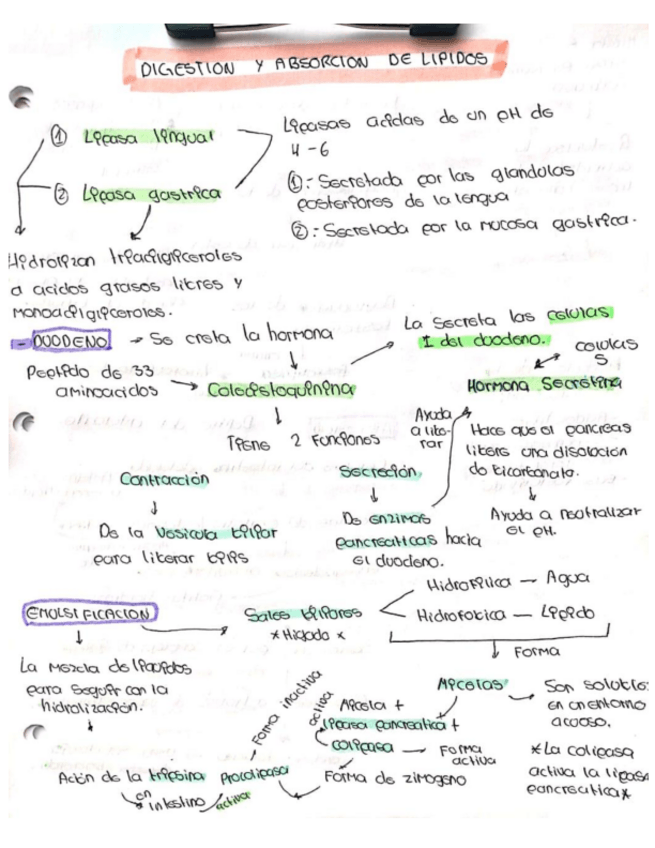 DIGESTION Y ABSORCION DE LIPIDOS
① Lipasa lingual
② Lipasa gastrica
Lipasas acidas de un pH de
4-6
①: Secretada por las glandulas
posteriores de la lengua
②: Secretada por la mucosa gastrica.
Hidrolizan triacilgliceroles
a acidos grasos libres y
monoacilgliceroles.
- DUODENO → Se crea la hormona
La secreta las celulas
I del duodeno.
celulas
S
Peptido de 33
aminoacidos → Colecistoquinina
Hormona Secretina
Tiene 2 funciones
Ayuda
a libe-
rar
Hace que el pancreas
libere una disolucion
de bicarbonato.
Contracción
Secreción
De la vesicula biliar
para liberar bilis
De enzimas
pancreaticas hacia
el duodeno.
Ayuda a neutralizar
el pH.
EMULSIFICACION
Sales biliares
*Higado*
Hidrofilica — Agua
Hidrofobica — Lipido
Forma
La mezcla de lipidos
para seguir con la
hidrolización.
Micelas
Son solubles
en un entorno
acuoso.
Micela +
lipasa pancreatica +
colipasa — Forma
activa
activa
Forma inactiva
*La colipasa
activa la lipasa
pancreatica*
Acion de la tripsina
Procolipasa
Forma de zimogeno
en
intestino
activa